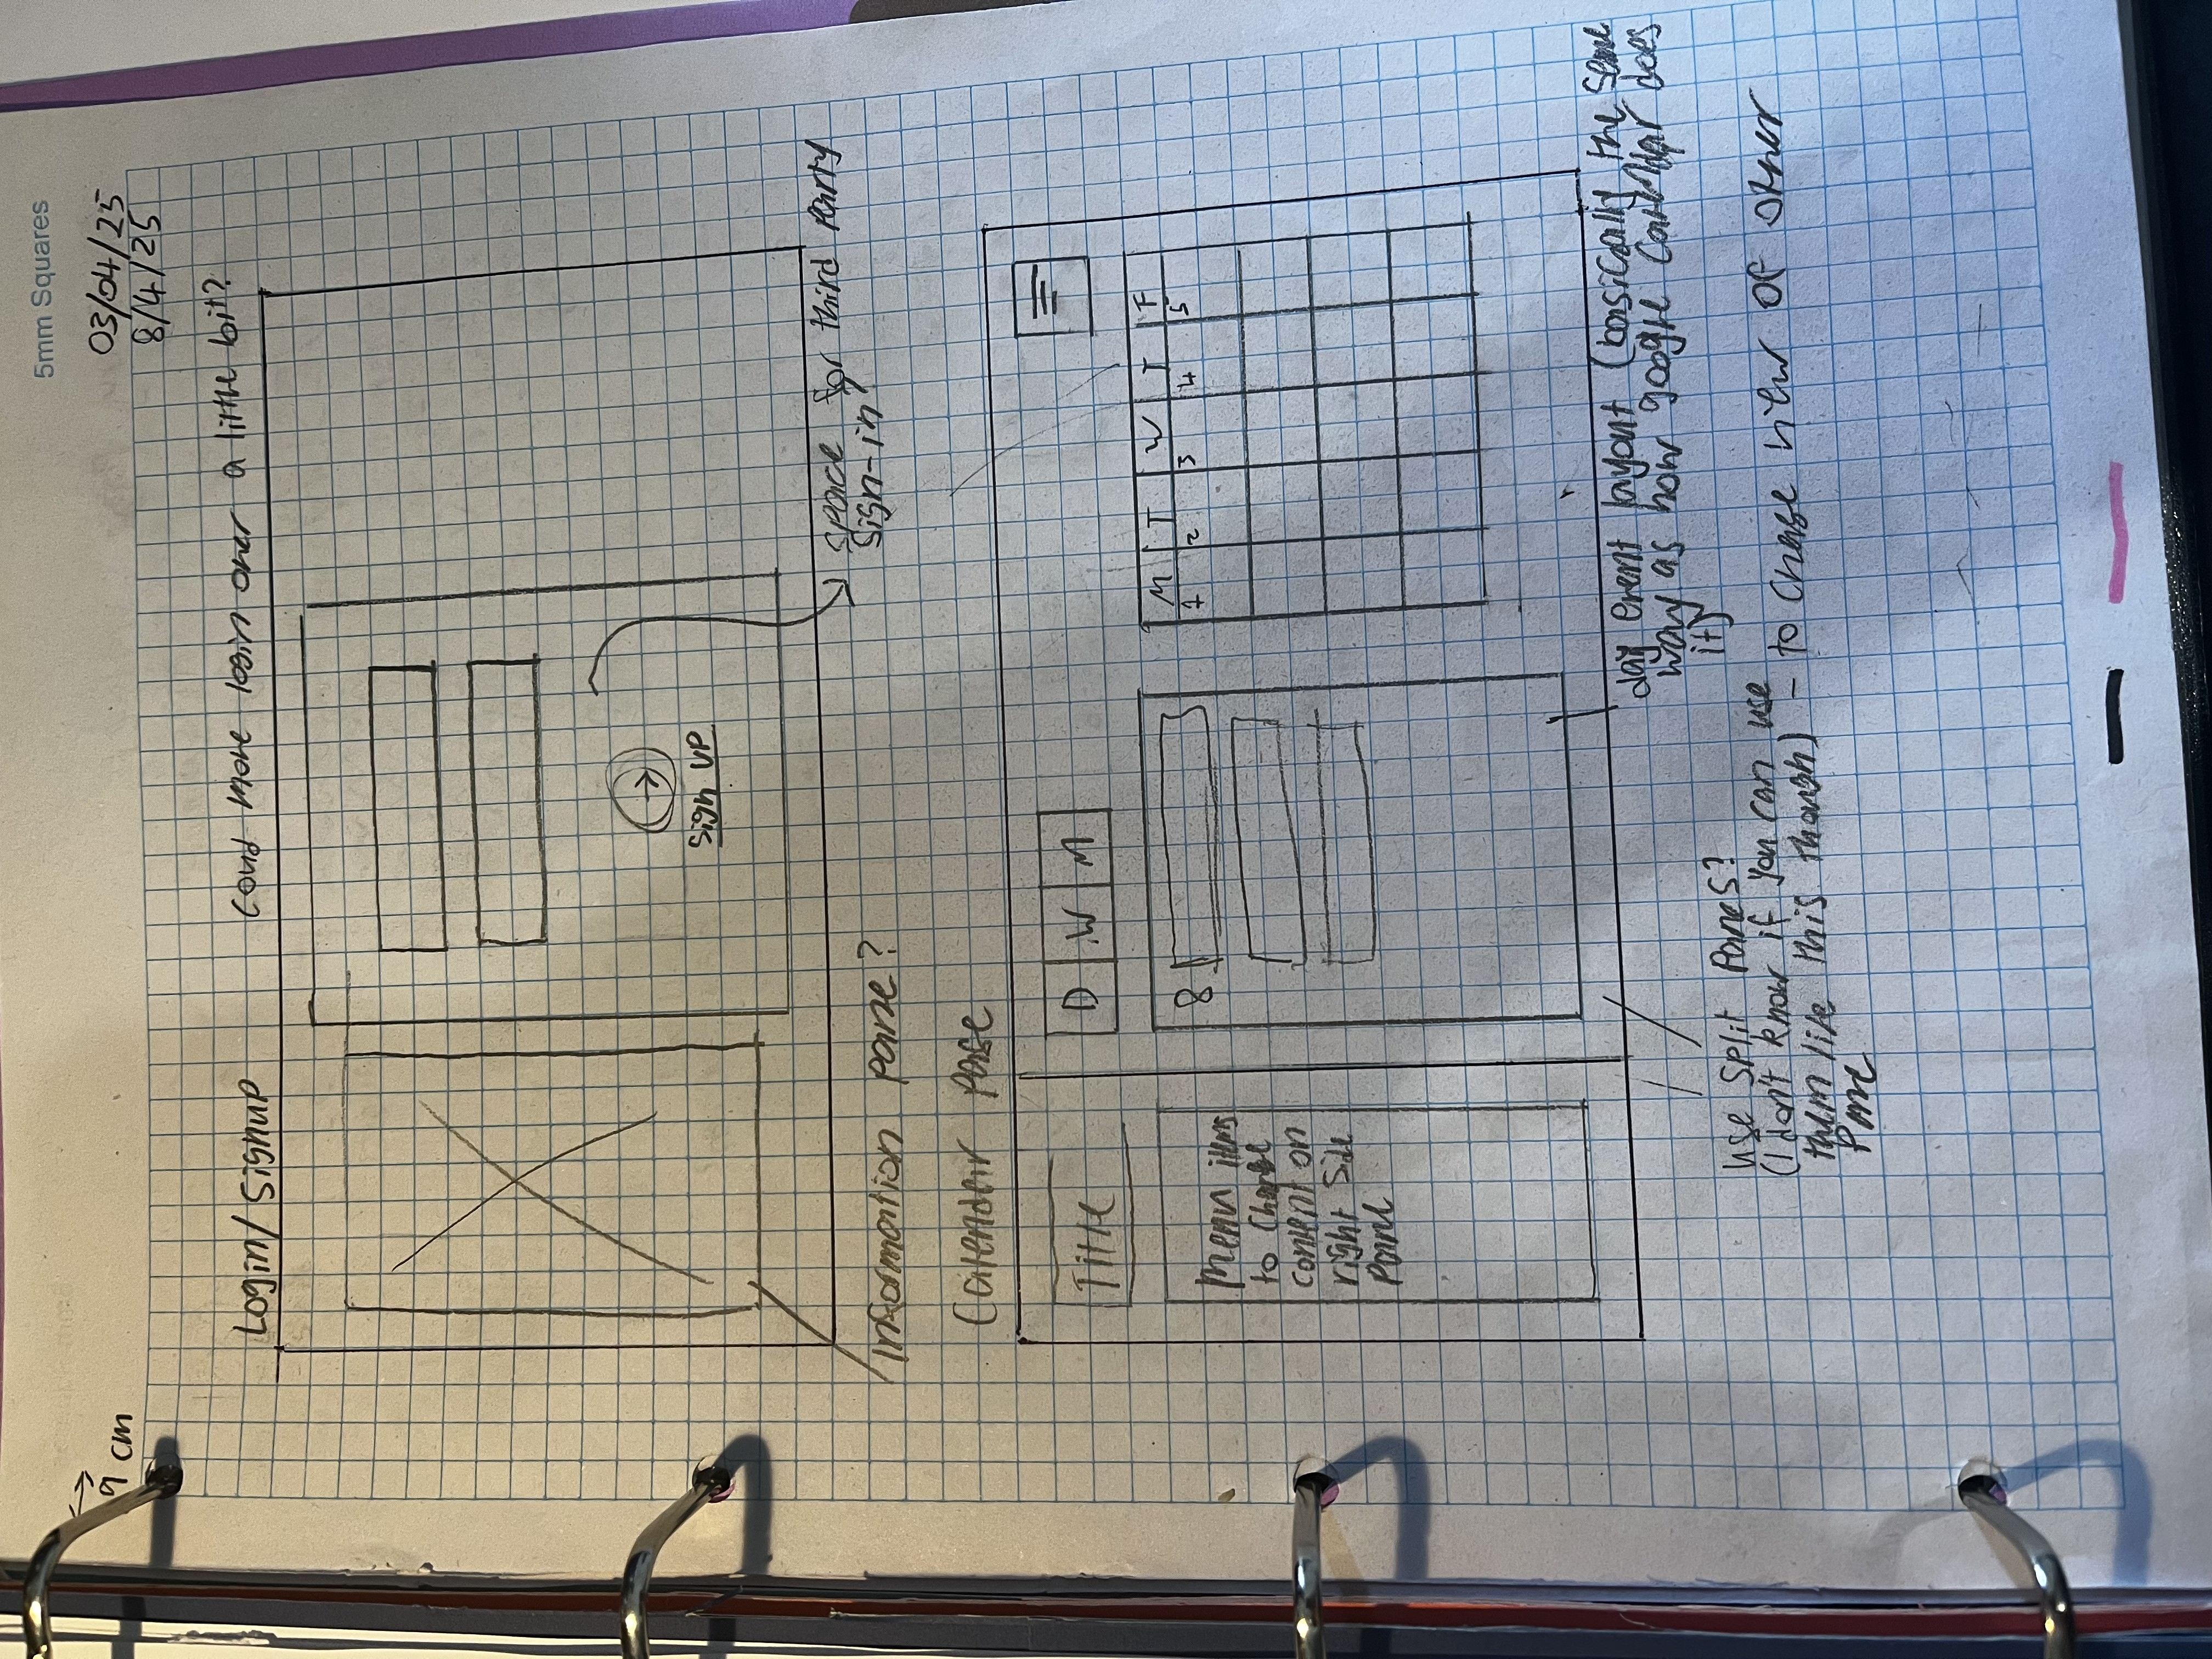 5mm Squares
9 cm
03/04/25
8/4/25
Login/Signup
Could move login over a little bit?
Sign UP
space for third Party
Sign-in?
Information pane?
Calendar Page
Title
D W M
M T W T F
1 2 3 4 5
8
Menu items
to Change
content on
right side
Pane
day event layout (basically the same
way as how google Calendar does
it)
use split Panes?
(I don't know if you can use
them like this though) - to change view of other
Pane